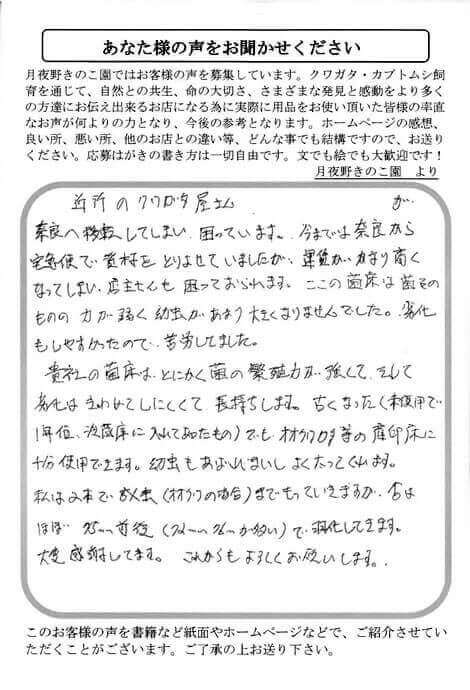 あなた様の声をお聞かせください
月夜野きのこ園ではお客様の声を募集しています。クワガタ・カブトムシ飼
育を通じて、自然との共生、命の大切さ、さまざまな発見と感動をより多く
の方達にお伝え出来るお店になる為に実際に用品をお使い頂いた皆様の率直
なお声が何よりの力となり、今後の参考となります。ホームページの感想、
良い所、悪い所、他のお店との違い等、どんな事でも結構ですので、お送り
ください。応募はがきの書き方は一切自由です。文でも絵でも大歓迎です！
月夜野きのこ園　より
近所のクワガタ屋さん　が
奈良へ移転してしまい、困っています。今までは奈良から
宅急便で資材をとりよせていましたが、運賃がかなり高く
なってしまい、店主さんも困っておられます。ここの菌床は菌その
ものの力が弱く幼虫があまり大きくなりませんでした。劣化
もしやすかったので、苦労してました。
貴社の菌床は、とにかく菌の繁殖力が強くて、そして
劣化はきわめてしにくくて長持ちします。古くなった(未使用で
1年位、冷蔵庫に入れてあったもの)でもオオクワガタ等の産卵床に
十分使用できます。幼虫もあばれないしよく太ってくれます。
私は2本で成虫(オオクワの場合)までもっていきますが、♂は
ほぼ75mm前後(72mm 76mmが多い)で羽化してきます。
大変感謝してます。これからもよろしくお願いします。
このお客様の声を書籍など紙面やホームページなどで、ご紹介させてい
ただくことがございます。ご了承の上お送り下さい。